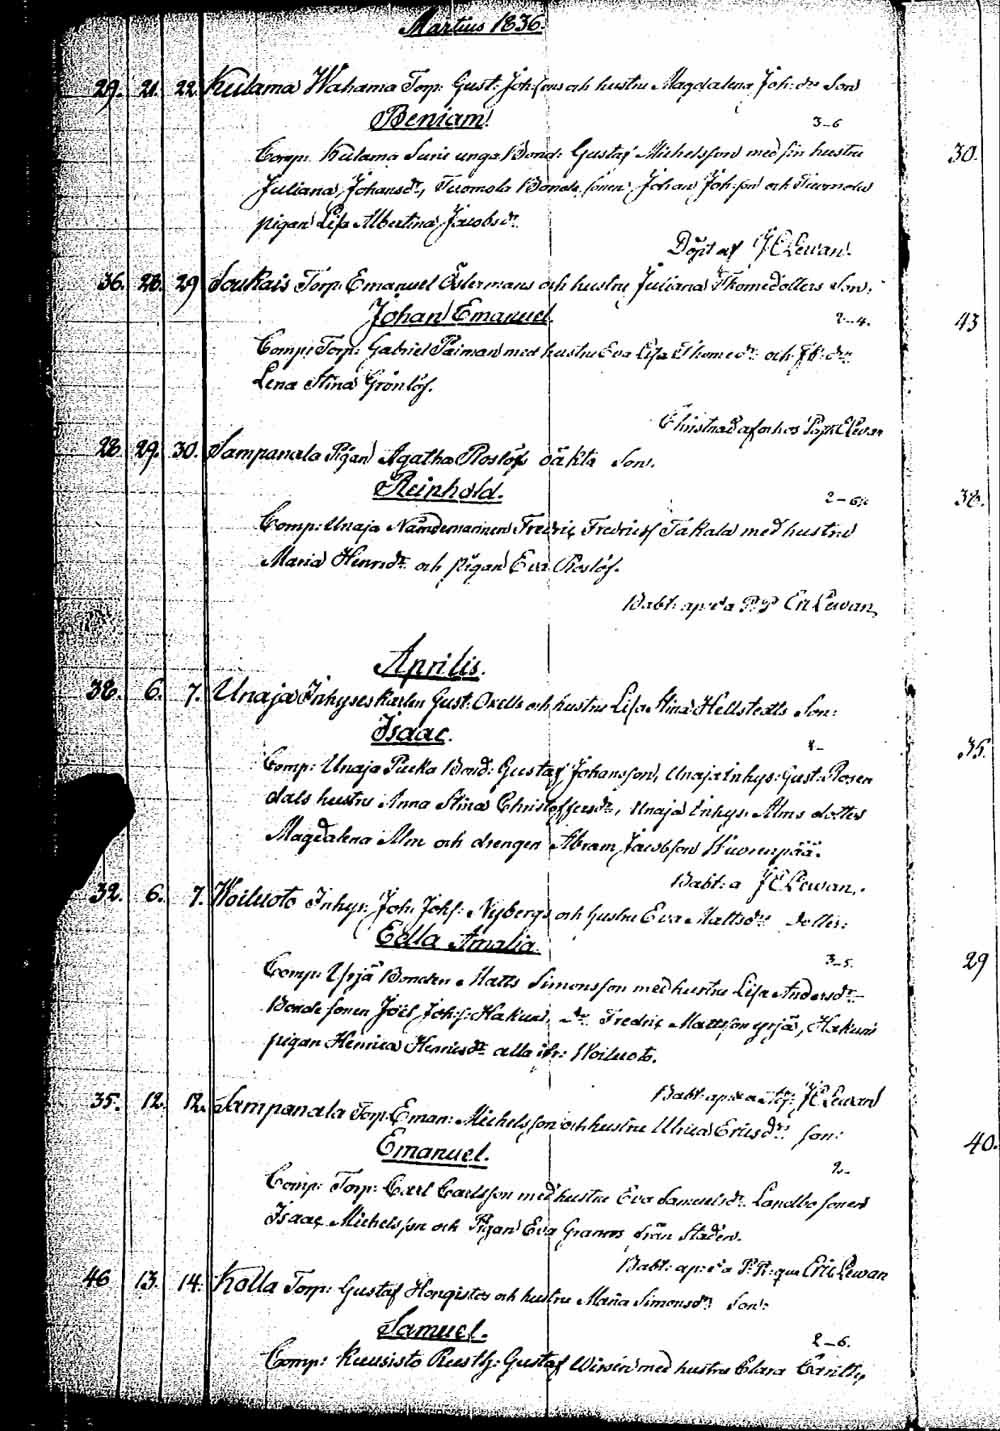 Martius 1836.
29. 21. 22. Kulama Wahama Torp: Gust: Joh:sons och hustru Magdalena Joh: dr Son
Beniam!
3-6
Comp: Kulama bond: Gustaf Michelsson med sin hustru 30.
Juliana Johansdr, Tuomola Bonde sonen Johan Joh:son och Tuomola
pigan Lisa Albertina Jacobsdr
Döpt af J C Lewan.
36. 28. 29 Soukais Torp: Emanuel Östermans och hustru Juliana Thomedotters Son:
Johan Emanuel.
2-4. 43
Comp: Torp: Gabriel Paiman med hustru Eva Lisa Thomedr och
Lena Stina Grönlöf.
Christnad af Lewan
28. 29. 30. Sampanala Pigan Agatha Roslöfs oäkta Son.
Reinhold.
38.
Comp: Unaja Nämdemannen Fredric Fredricss Takala med hustru
Maria Henricdr och pigan Eva Roslöf.
Babt: Eric Lewan
Aprilis.
38. 6. 7. Unaja Inhyseskarlen Gust: Oxells och hustru Lisa Stina Hellstedts Son:
Isaac.
35.
Comp: Unaja Pucka Bond: Gustaf Johansson, Unaja Inhys: Gust: Rosen
dals hustru Anna Stina Christoffersdr, Unaja Inhys: Alms dotter
Magdalena Alm och drengen Abram Jacobsson
Babt: a J C Lewan.
32. 6. 7. Woiluoto Inhys: Joh: Johs: Nybergs och hustru Eva Mattsdrs dotter:
Edla Amalia.
3-5. 29
Comp: Yrjä Bonden Matts Simonsson med hustru Lisa Andersdr
Bonde sonen Joël Joh:s: Hakuni, Dr Fredric Mattsson yrjä, Hakuni
pigan Henrica Henricsdr alla ifr: Woiluoto.
Babt: J C Lewan
35. 12. 12. Sampanala Torp: Eman: Michelsson och hustru Ulrica Ericsdrs son:
Emanuel.
2- 40.
Comp: Torp: Carl Carlsson med hustru Eva Samuelsdr. Landbo sonen
Isaac Michelsson och Pigan Eva från Staden.
Babt: Eric Lewan
46 13. 14. Kolla Torp: Gustaf Hongistos och hustru Maria Simonsdr Son:
Samuel.
2-6.
Comp: Kuusisto Rusth: Gustaf Wirsen med hustru Clara